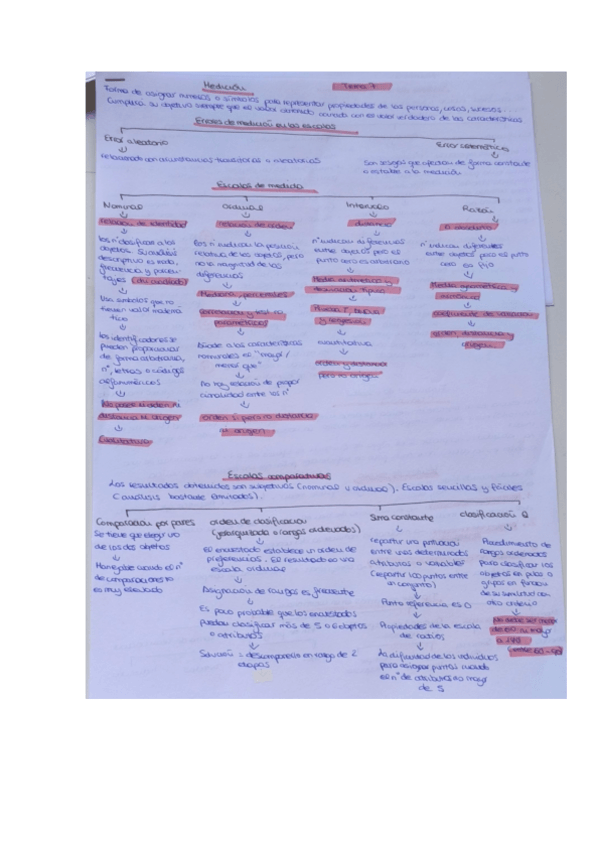 Medición
Tema 7
Forma de asignar números o símbolos para representar propiedades de las personas, cosas, sucesos.
Cumplirá su objetivo siempre que el valor obtenido con el valor verdadero de las características
Errores de medición en las escalas
Error aleatorio
Error sistemático
Relacionado con circunstancias transitorias o aleatorias
Son sesgos que afectan de forma constante
o estable a la medición
Escalas de medida
Nominal
Ordinal
Intervalo
Razón
relación de identidad
relación de orden
distancia
los nº clasifican a los
objetos. Su análisis
descriptivo es moda,
frecuencia y porcen-
tajes
los nº indican la posición
relativa de los objetos, pero
no la magnitud de las
diferencias
nº indican diferencias
entre objetos pero el
punto cero es arbitrario
nº indican diferencias
entre objetos pero el punto
cero es fijo
Mediana, percentiles
Media aritmética y
desviación típica
Media geométrica y
armónica
Usa símbolos que no
tienen valor matemá
tico
coeficiente de variación
los identificadores se
pueden proporcionar
de forma arbitraria,
nº, letras o códigos
alfanuméricos
Añade a las características
nominales el "mayor/
menor que"
cuantitativa
orden y distancia
pero no origen
orden, distancia y
origen
No posee ni orden ni
distancia ni origen
Cualitativa
No hay relación de propor
cionalidad entre los nº
orden sí, pero no distancia
ni origen
Escalas comparativas
Los resultados obtenidos son subjetivos (nominal u ordinal). Escalas sencillas y fáciles
(análisis bastante limitados).
Comparación por pares
orden de clasificación
(jerarquizada o rangos ordenados)
Suma constante
clasificación Q
Se tiene que elegir uno
de los dos objetos
Manejable cuando el nº
de comparaciones no
es muy elevado
El encuestado establece un orden de
preferencias. El resultado es una
escala ordinal
Asignación de rangos es frecuente
Es poco probable que los encuestados
puedan clasificar más de 5 o 6 objetos
o atributos
Solución: descomponerlo en rango de 2
etapas
repartir una puntuación
entre unos determinados
atributos o variables
(repartir 100 puntos entre
un conjunto)
Punto referencia es 0
Propiedades de la escala
de ratios
Dificultad de los individuos
para asignar puntos cuando
el nº de atributos es mayor
de 5
Procedimiento de
rangos ordenados
para clasificar los
objetos en pilas o
grupos en función
de su similitud con
otro criterio
No debe ser menor
de 60 ni mayor
a 140
(entre 60-90)